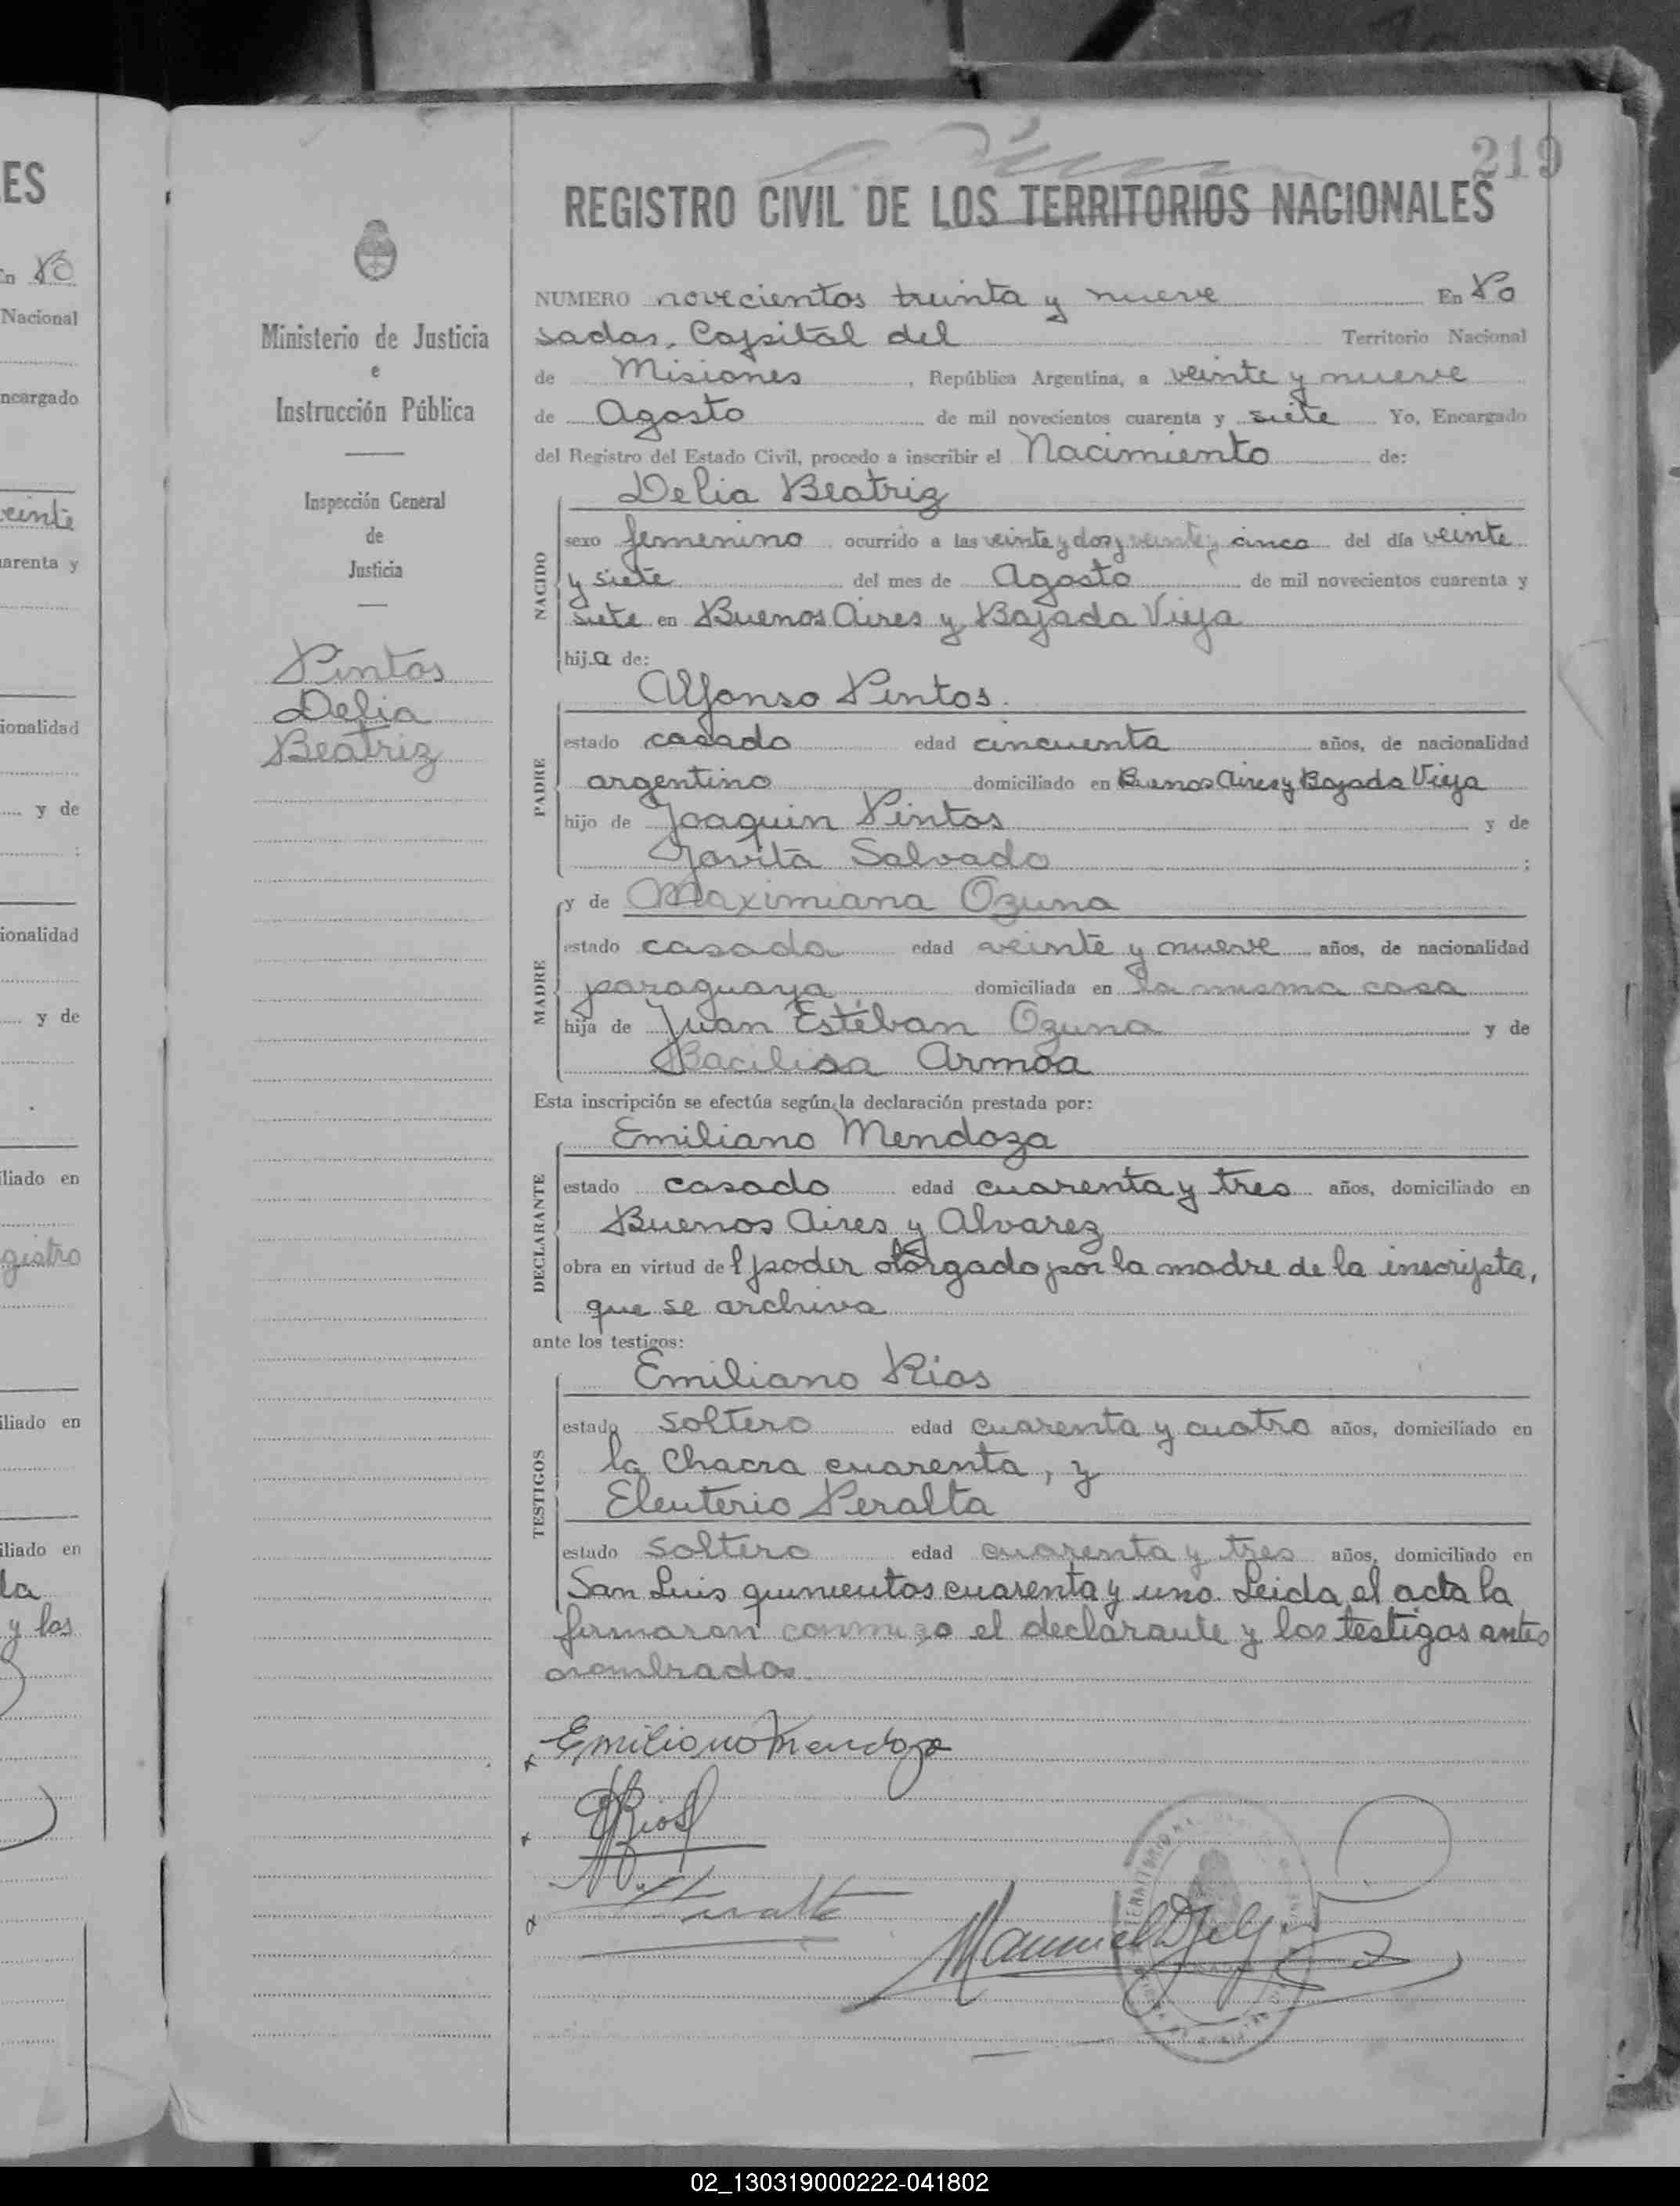 ES
En Po
Nacional
ncargado
veinte
arenta y
ionalidad
y de
ionalidad
y de
iliado en
gistro
iliado en
iliado en
la
y los
219
REGISTRO CIVIL DE LOS TERRITORIOS NACIONALES
Ministerio de Justicia
e
Instrucción Pública
Inspección General
de
Justicia
Pintos
Delia
Beatriz
NUMERO novecientos treinta y nueve En Po
sadas, Capital del Territorio Nacional
de Misiones, República Argentina, a veinte y nueve
de Agosto de mil novecientos cuarenta y siete Yo, Encargado
del Registro del Estado Civil, procedo a inscribir el Nacimiento de:
Delia Beatriz
NACIDO
sexo femenino ocurrido a las veinte y dos y veinte y cinco del día veinte
y siete del mes de Agosto de mil novecientos cuarenta y
siete en Buenos Aires y Bajada Vieja
hija de:
Alfonso Pintos
PADRE
estado casado edad cincuenta años, de nacionalidad
argentino domiciliado en Buenos Aires y Bajada Vieja
hijo de Joaquin Pintos y de
Jovita Salvado ;
y de Maximiana Ozuna
MADRE
estado casada edad veinte y nueve años, de nacionalidad
paraguaya domiciliada en la misma casa
hija de Juan Estéban Ozuna y de
Bacilisa Armoa
Esta inscripción se efectúa según la declaración prestada por:
Emiliano Mendoza
DECLARANTE
estado casado edad cuarenta y tres años, domiciliado en
Buenos Aires y Alvarez
obra en virtud del poder otorgado por la madre de la inscripta,
que se archiva
ante los testigos:
Emiliano Rios
TESTIGOS
estado soltero edad cuarenta y cuatro años, domiciliado en
la Chacra cuarenta, y
Eleuterio Peralta
estado soltero edad cuarenta y tres años, domiciliado en
San Luis quinientos cuarenta y uno. Leida el acta la
firmaron conmigo el declarante y los testigos antes
nombrados.
Emiliano Mendoza
E Rios
Peralta
Manuel
02_130319000222-041802